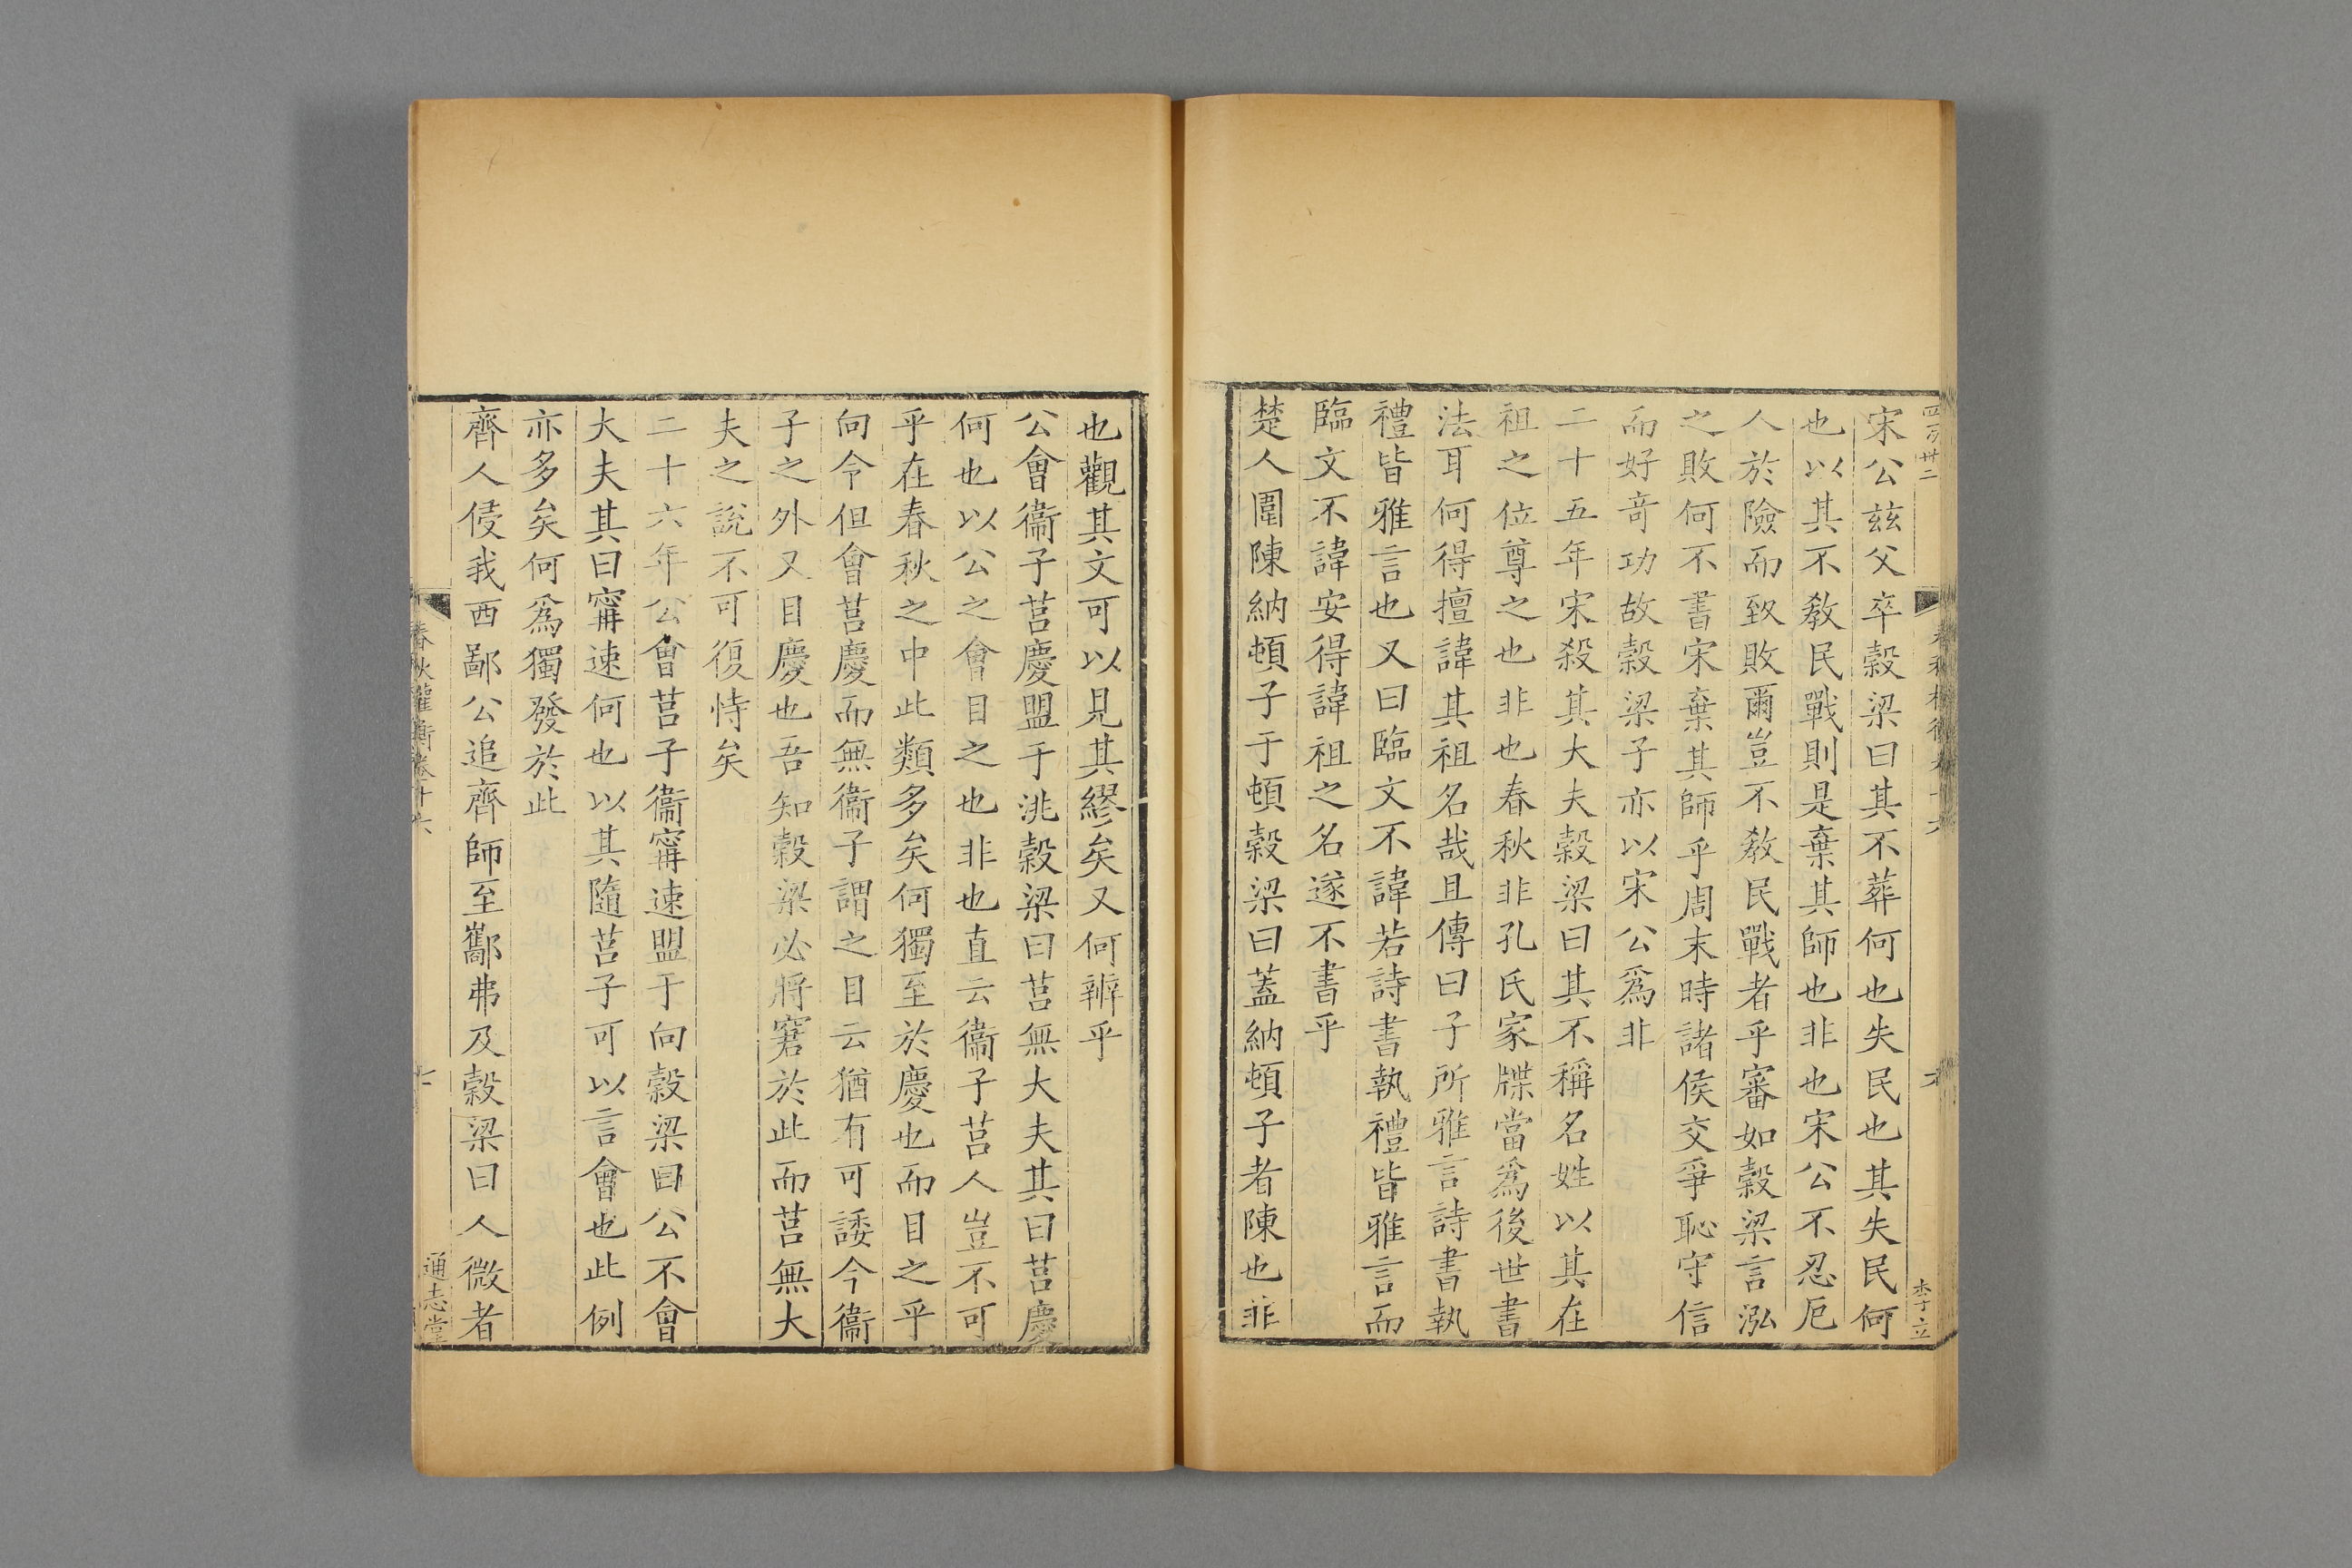 宋公兹父卒穀梁曰其不葬何也失民也其失民何
也以其不敎民戰則是棄其師也非也宋公不忍厄
人於險而致敗爾豈不敎民戰者乎審如穀梁言泓
之敗何不書宋棄其師乎周末時諸侯交爭恥守信
而好竒功故穀梁子亦以宋公爲非
二十五年宋殺其大夫穀梁曰其不稱名姓以其在
祖之位尊之也非也春秋非孔氏家牒當爲後世書
法耳何得擅諱其祖名哉且傳曰子所雅言詩書執
禮皆雅言也又曰臨文不諱若詩書執禮皆雅言而
臨文不諱安得諱祖之名遂不書乎
楚人圍陳納頓子于頓穀梁曰蓋納頓子者陳也非
也觀其文可以見其繆矣又何辨乎
公會衞子莒慶盟于洮穀梁曰莒無大夫其曰莒慶
何也以公之會目之也非也直云衞子莒人豈不可
乎在春秋之中此類多矣何獨至於慶也而目之乎
向令但會莒慶而無衞子謂之目云猶有可諉今衞
子之外又目慶也吾知穀梁必將窘於此而莒無大
夫之說不可復恃矣
二十六年公會莒子衞甯速盟于向穀梁曰公不會
大夫其曰甯速何也以其隨莒子可以言會也此例
亦多矣何爲獨發於此
齊人侵我西鄙公追齊師至酅弗及穀梁曰人微者
春秋權衡卷十六
七
通志堂